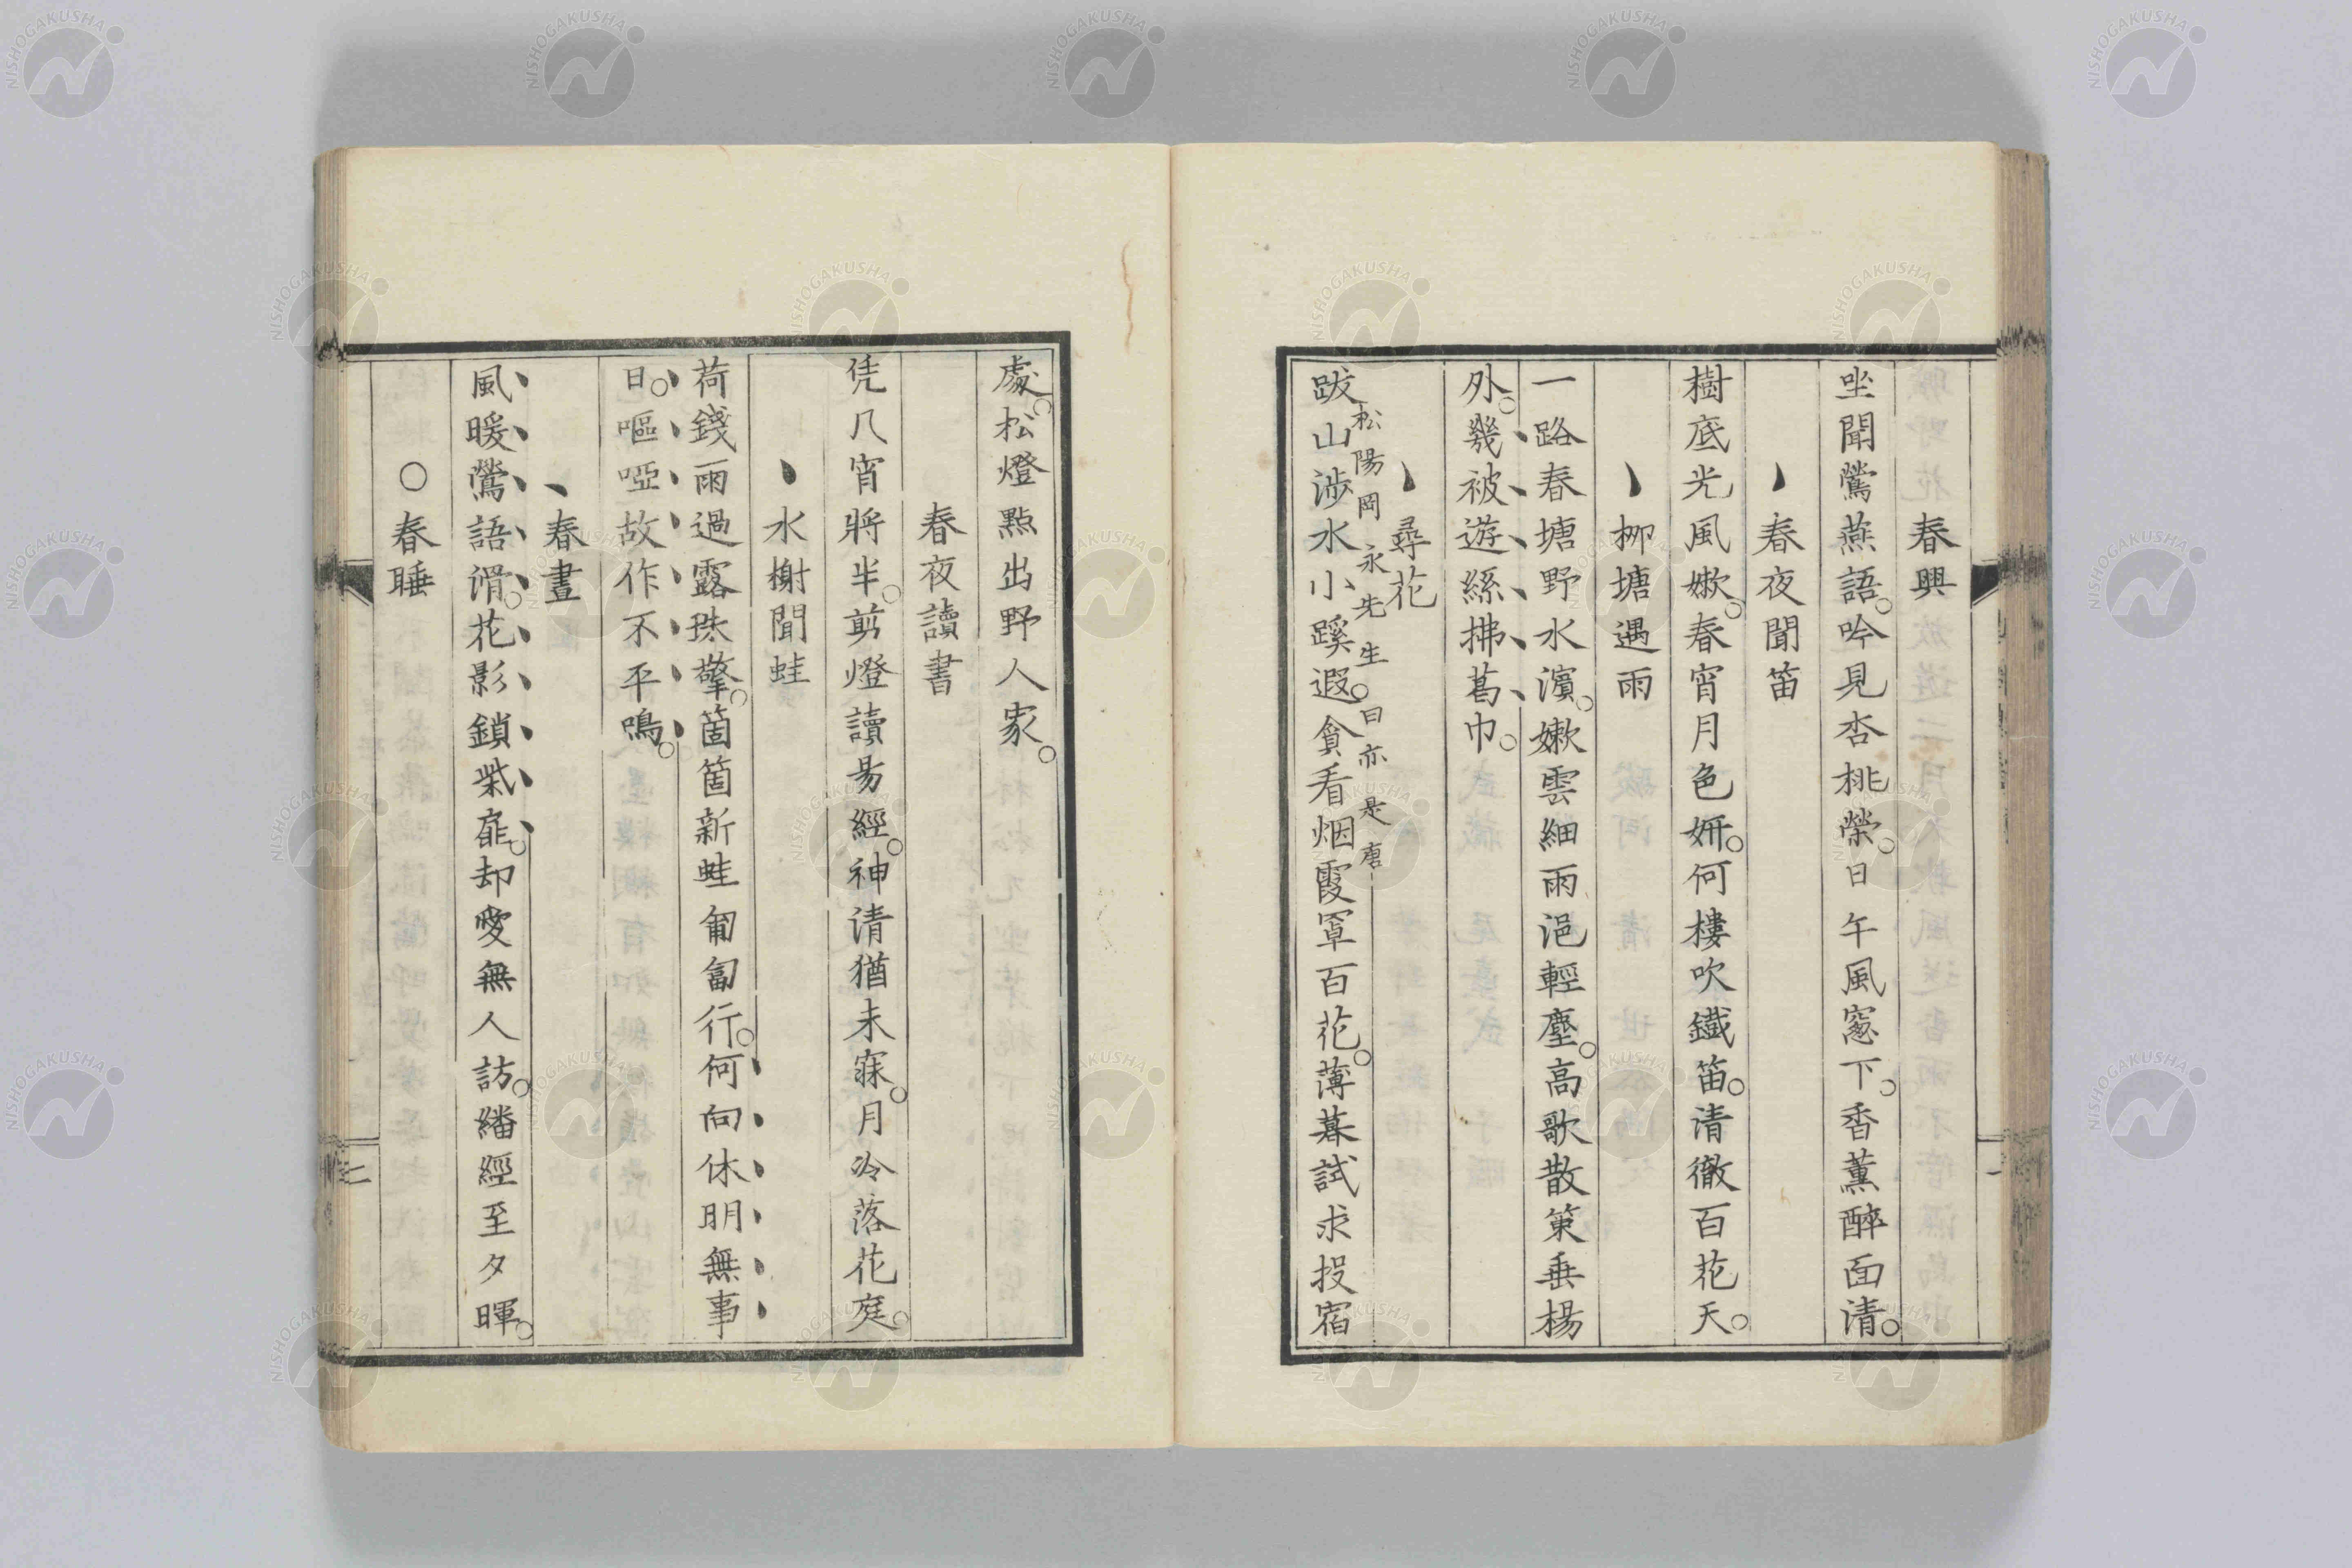 春興
坐聞鶯燕語。吟見杏桃榮。日午風窓下。香薫醉面清。
春夜聞笛
樹底光風嫩。春宵月色妍。何樓吹鐵笛。清徹百花天。
柳塘遇雨
一路春塘野水濵。嫩雲細雨浥輕塵。高歌散策垂楊
外。幾被遊絲拂葛巾。
尋花
松陽岡永先生曰亦是唐
跋山涉水小蹊遐。貪看烟霞罩百花。薄暮試求投宿
處。松燈點出野人家。
春夜讀書
凭几宵將半。剪燈讀易經。神清猶未寐。月冷落花庭。
水榭聞蛙
荷錢雨過露珠擎。箇箇新蛙匍匐行。何向休明無事
日。嘔啞故作不平鳴。
春晝
風暖鶯語滑。花影鎖柴扉。却愛無人訪。繙經至夕暉。
○春睡
NISHOGAKUSHA